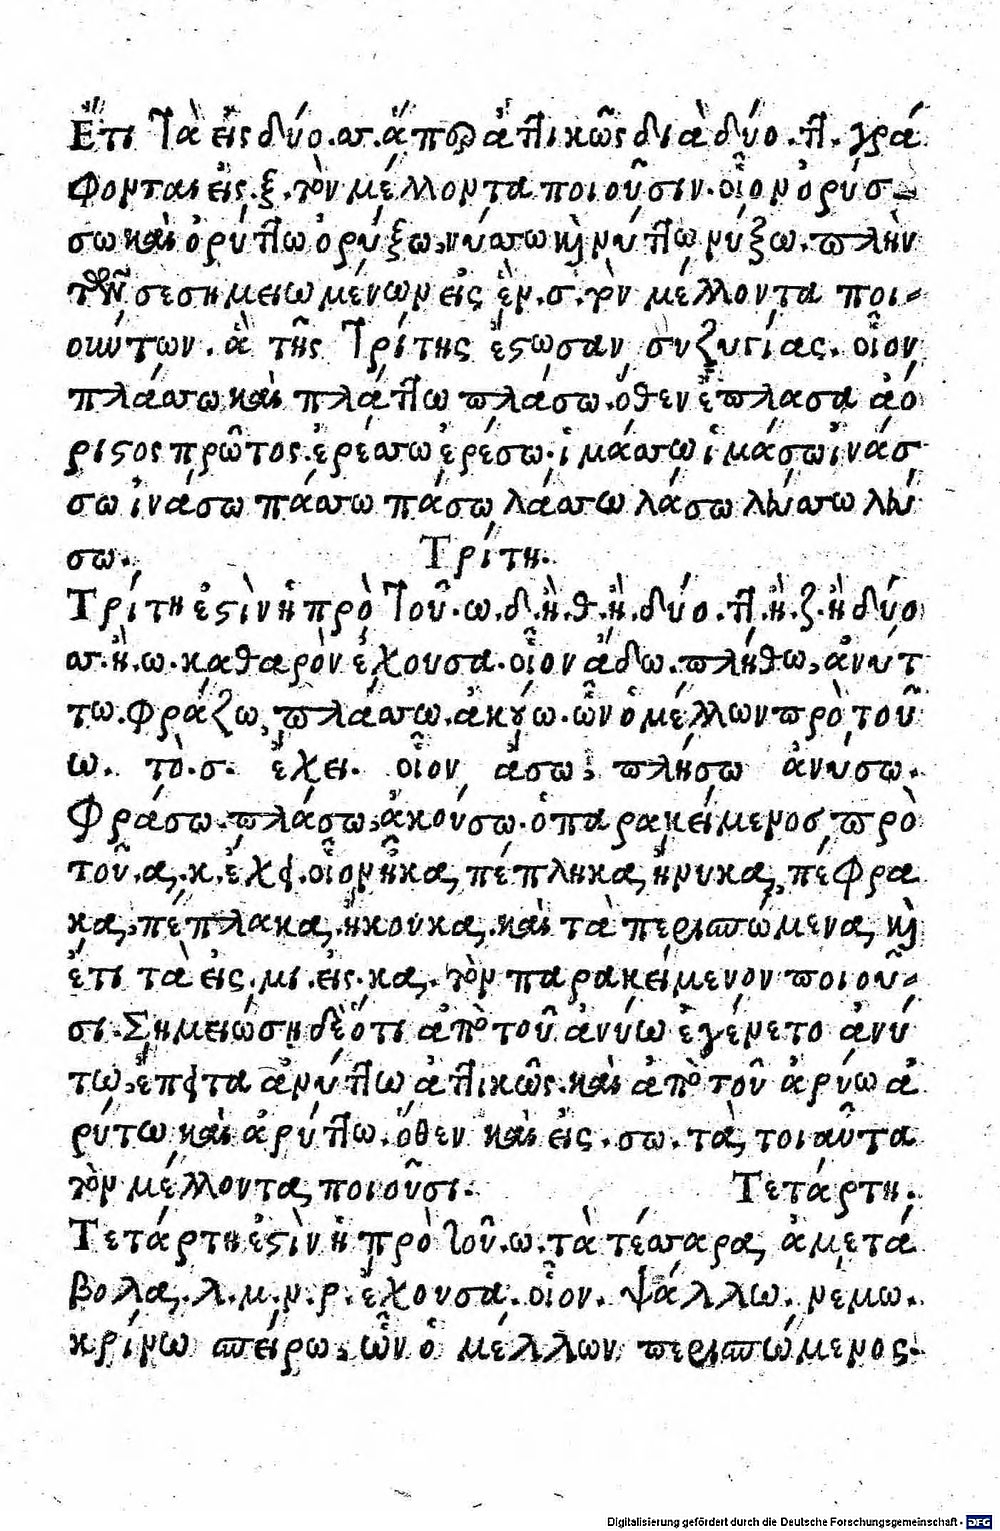 Ἔτι τὰ εἰς δύο.σσ.ἅπερ ἀττικῶς διὰ δύο.ττ.γρά
φονται εἰς.ξ.τὸν μέλλοντα ποιοῦσιν.οἷον ὀρύσ-
σω καὶ ὀρύττω ὀρύξω,νύσσω καὶ νύττω νύξω.πλὴν
τῶν σεσημειωμένων εἰς ἓν.σ.τὸν μέλλοντα ποι-
ούντων.ἃ τῆς τρίτης ἔσωσαν συζυγίας.οἷον
πλάσσω καὶ πλάττω πλάσω.ὅθεν ἔπλασα ἀό
ριστος πρῶτος.ἐρέσσω ἐρέσω.ἱμάσσω ἱμάσω ἰνάσ
σω ἰνάσω πάσσω πάσω λάσσω λάσω
σω.
Τρίτη.
Τρίτη ἐστὶν ἡ πρὸ τοῦ.ω.δ.ἢ.θ.ἢ.δύο.ττ.ἢ.ζ.ἢ δύο
σσ.ἢ.ω.καθαρὸν ἔχουσα.οἷον ᾄδω.πλήθω,ἀνύτ
τω.φράζω,πλάσσω.ἀκούω.ὧν ὁ μέλλων πρὸ τοῦ
ω. τὸ.σ. ἔχει. οἷον ᾄσω, πλήσω ἀνύσω.
Φράσω.πλάσω,ἀκούσω.ὁ παρακείμενος πρὸ
τοῦ.α.κ.ἔχει.οἷον ἧκα,πέπληκα,ἤνυκα,πέφρα
κα,πέπλακα,ἤκουκα.καὶ τὰ περισπώμενα καὶ
ἔτι τὰ εἰς.μι.εἰς.κα.τὸν παρακείμενον ποιοῦ-
σι.Σημειώσῃ δὲ ὅτι ἀπὸ τοῦ ἀνύω ἐγένετο ἀνύ
τω,ἔπειτα ἀνύττω ἀττικῶς.καὶ ἀπὸ τοῦ ἀρύω ἀ
ρύτω καὶ ἀρύττω.ὅθεν καὶ εἰς.σω.τὰ τοιαῦτα
τὸν μέλλοντα ποιοῦσι.
Τετάρτη.
Τετάρτη ἐστὶν ἡ πρὸ τοῦ.ω.τὰ τέσσαρα ἀμετά
βολα.λ.μ.ν.ρ.ἔχουσα.οἷον.ψάλλω.νεμω.
κρίνω σπείρω.ὧν ὁ μέλλων περισπώμενος.
Digitalisierung gefördert durch die Deutsche Forschungsgemeinschaft - DFG